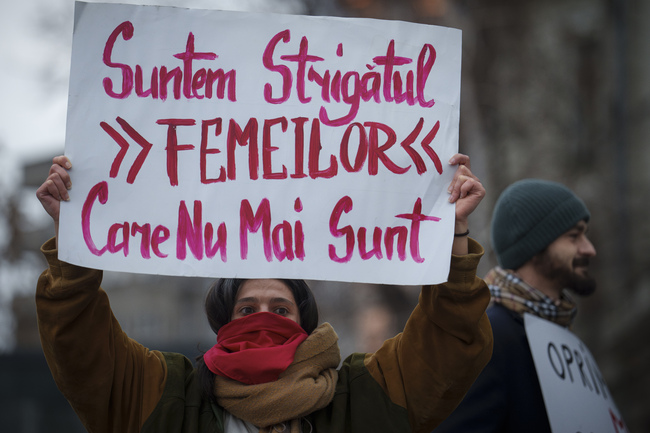 Suntem Strigătul
»FEMEILOR«
Care Nu Mai Sunt
OPRI